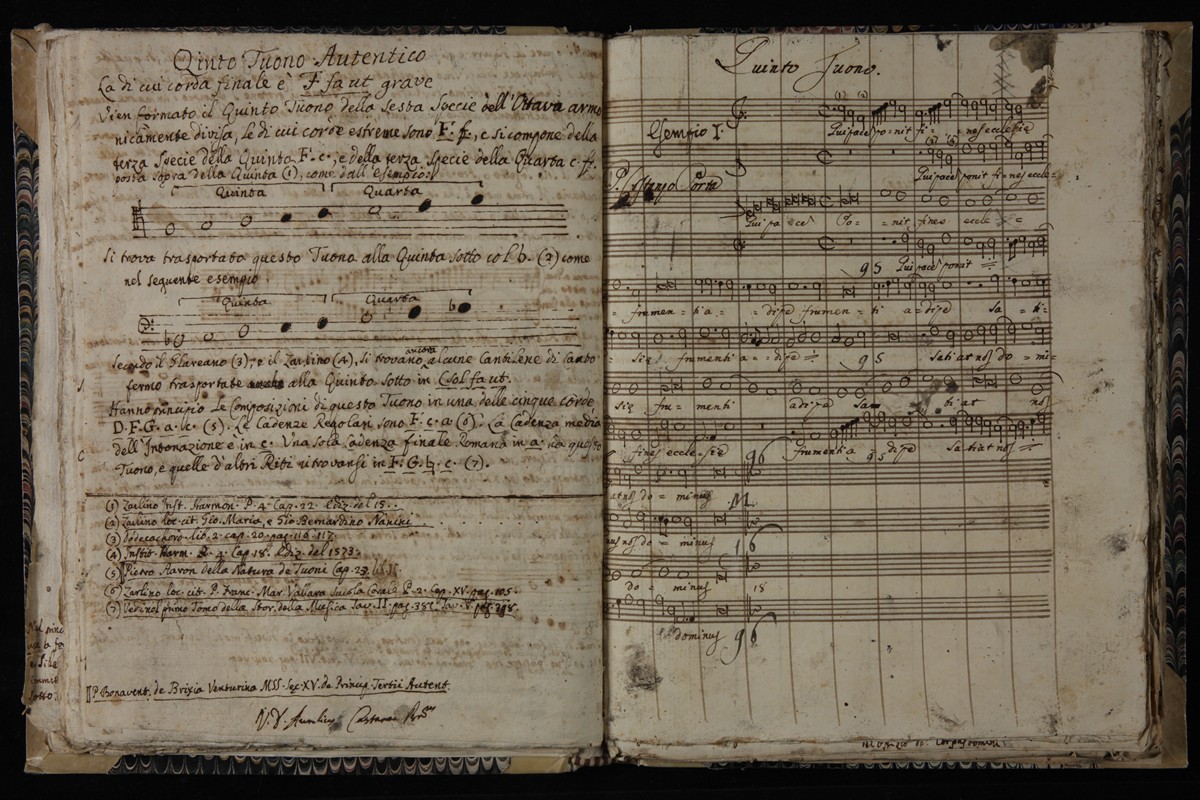 Qinto Tuono Autentico
La di cui corda finale è F fa ut grave
Vien formato il Quinto Tuono della Sesta Specie dell'Ottava armo
nicamente divisa, le di cui corde estreme sono F. f., e si compone della
terza Specie della Quinta F. c., e della terza Specie della Quarta c. f.
posta sopra della Quinta (1), come dall'esempio:
Quinta Quarta
Si trova trasportato questo Tuono alla Quinta sotto col b. (2) come
nel seguente esempio
Quinta Quarta
Secondo il Glareano (3), e il Zarlino (4), si trovano ancora alcune Cantilene di Canto
fermo trasportate alla Quinta sotto in C sol fa ut.
Hanno principio le Composizioni di questo Tuono in una delle cinque corde
D. F. G. a. c. (5). Le Cadenze Regolari sono F. c. a (6). La Cadenza media
dell'Intonazione è in c. Una sola Cadenza finale Romana in a. ha questo
Tuono, e quelle d'altri Riti ritrovansi in F. G. h. c. (7).
(1) Zarlino Inst. Harmon. P. 4. Cap. 22. Ediz. del 15..
(2) Zarlino loc. cit. Gio. Maria, e Gio Bernardino Nanini
(3) Dodecachord. lib. 2. cap. 20. pag. 116. 117.
(4) Instit. Harm. P. 4. Cap. 18. Ediz. del 1573.
(5) Pietro Aaron della Natura de Tuoni Cap. 25.
(6) Zarlino loc. cit. P. Franc. Mar. Vallara Scuola Corale P. 2. Cap. XV. pag. 105.
(7) Vedi nel primo Tomo della Stor. della Musica Tav. II. pag. 382. Tav. V. pag. 398.
P. Bonavent. de Brixia Venturina MSS. Sec. XV. de Princip. Tertii Autent.
Quinto Tuono.
Esempio I.
(1) (2)
Qui pacem po = nit fi = nes ecclesię
P. Costanzo Porta
Qui pacem ponit fines eccle =
Qui pa = cem Po = nit fines eccle =
95 Qui pacem ponit
= frumenti a = = dipe frumen = ti a = dipe sa = ti =
się frumenti a = dipe 95 satiat nos do = mi =
się fru = menti adipe sa = tiat nos
fines ecclesię 96 frumenti a 95 dipe satiat nos
at nos do = minus M.
nus nos do = minus 16
do = minus 18
dominus 96